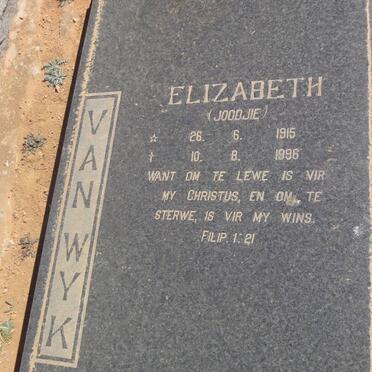 VAN WYK
ELIZABETH
(JOODJIE)
☆ 26. 6. 1915
† 10. 8. 1996
WANT OM TE LEWE IS VIR
MY CHRISTUS, EN OM TE
STERWE, IS VIR MY WINS.
FILIP. 1: 21